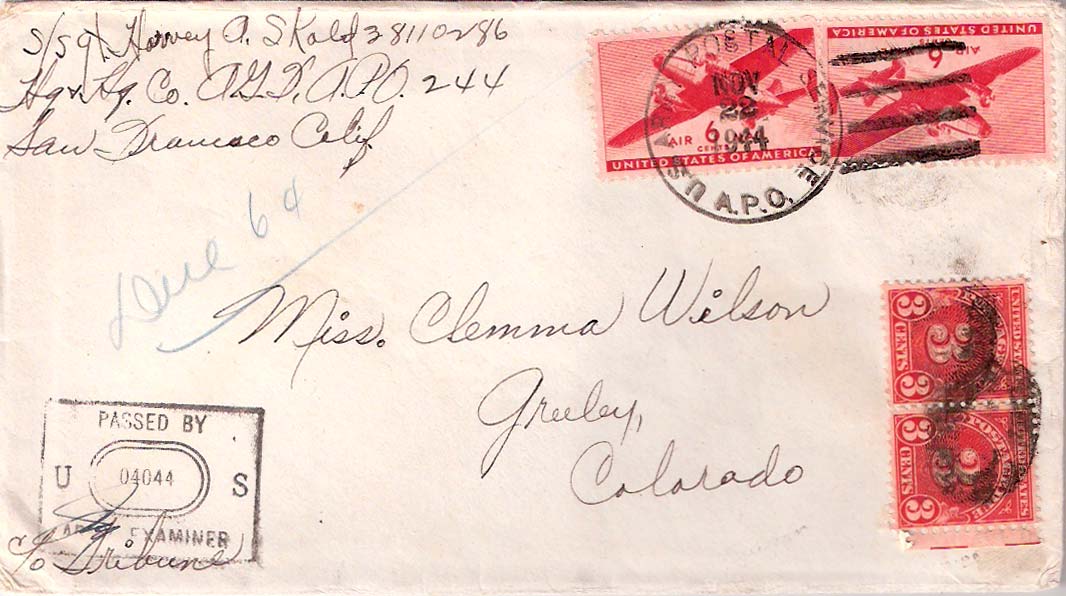 S/Sgt Harvey A. Skold 38110286
Hq & Hq. Co. A.G.F. A.P.O. 244
San Francisco Calif
AIR 6 CENTS
UNITED STATES OF AMERICA
6 CENTS AIR
UNITED STATES OF AMERICA
U.S. ARMY POSTAL SERVICE
NOV
22
1944
A.P.O.
Due 6¢
Miss. Clemma Wilson
Greeley,
Colorado
3 CENTS 3
UNITED STATES
POSTAGE DUE
3 CENTS 3
UNITED STATES
POSTAGE DUE
PASSED BY
U 04044 S
ARMY EXAMINER
c/o Tribune